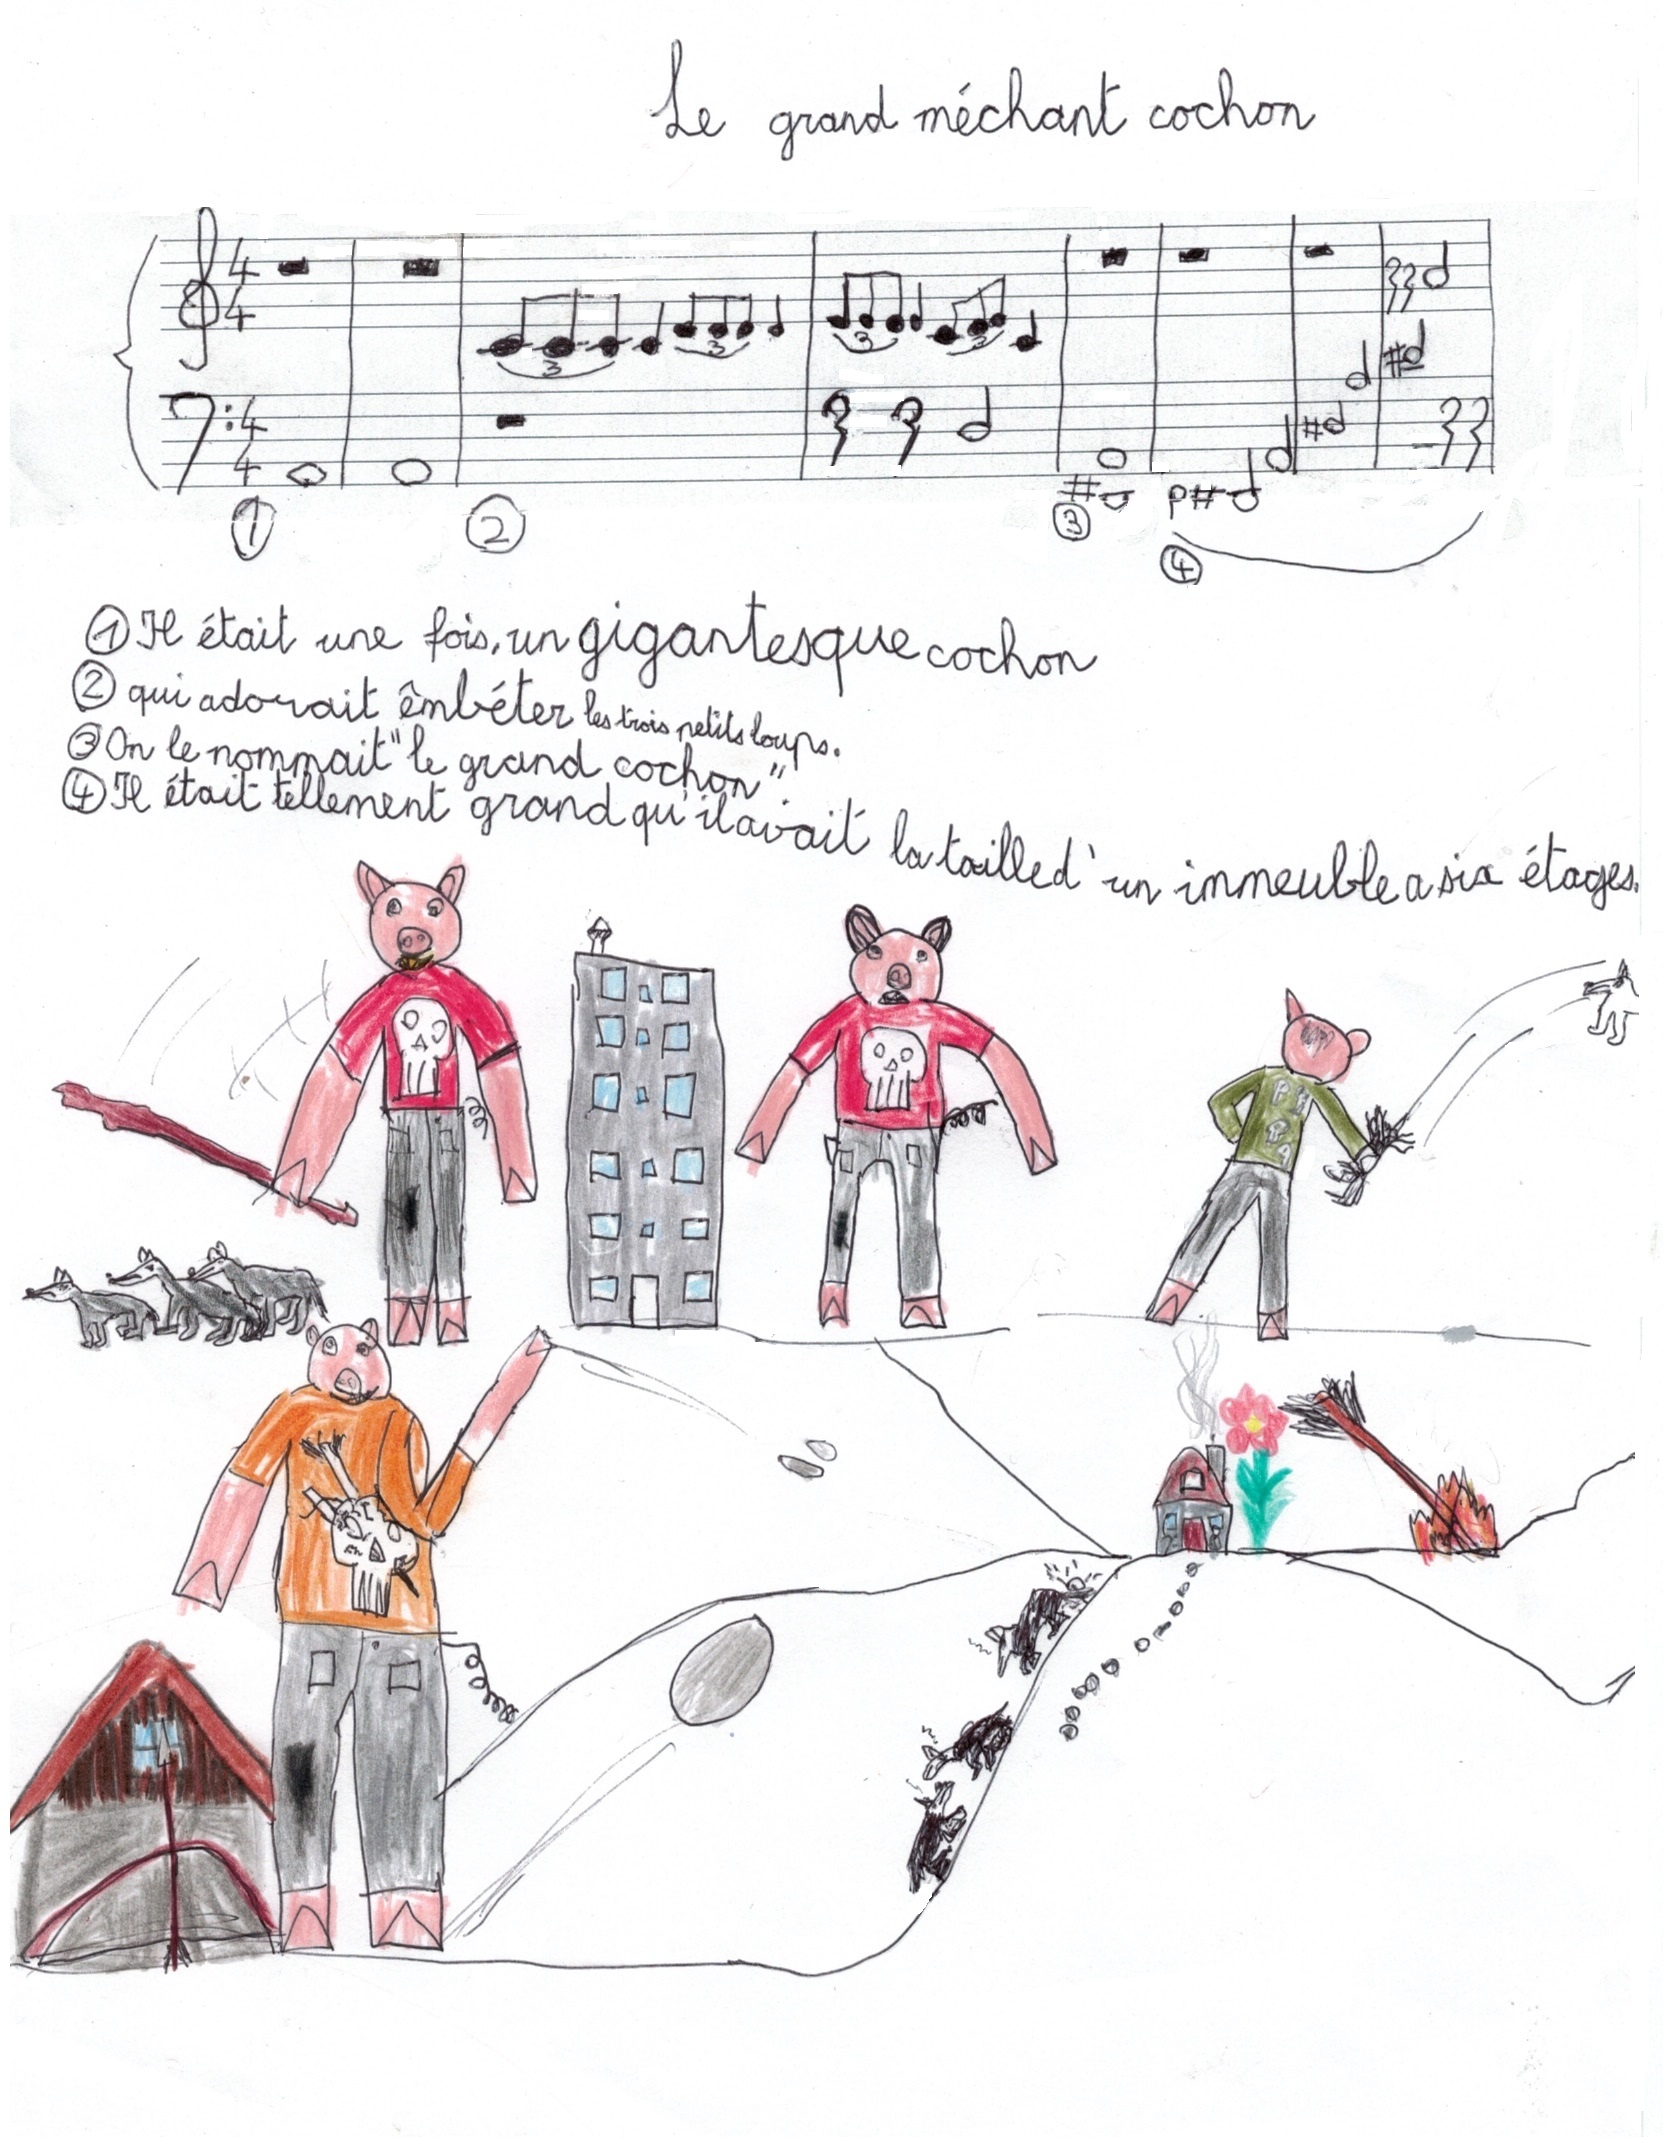 Le grand méchant cochon
4 4
4 4
3 3 3 3
① ② ③ ④
① Il était une fois, un gigantesque cochon
② qui adorait êmbéter les trois petits loups.
③ On le nommait "le grand cochon"
④ Il était tellement grand qu'il avait la taille d'un immeuble a six étages.